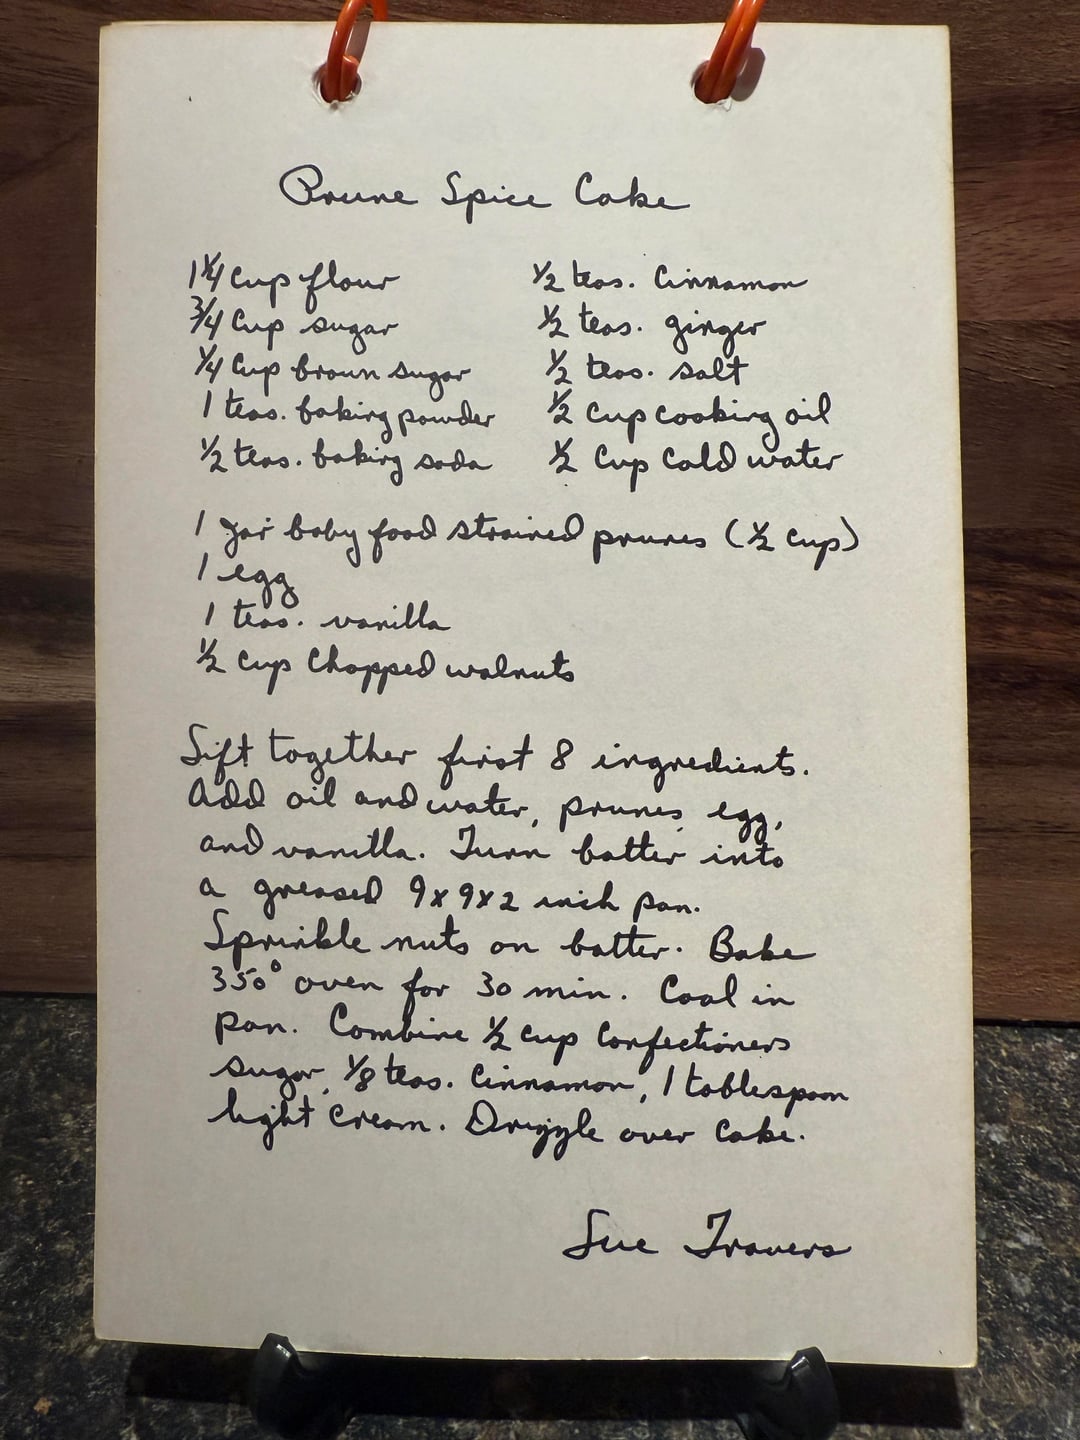 Prune Spice Cake
1 1/4 cup flour
3/4 cup sugar
1/4 cup brown sugar
1 teas. baking powder
1/2 teas. baking soda
1/2 teas. cinnamon
1/2 teas. ginger
1/2 teas. salt
1/2 cup cooking oil
1/2 cup cold water
1 jar baby food strained prunes (1/2 cup)
1 egg
1 teas. vanilla
1/2 cup chopped walnuts
Sift together first 8 ingredients.
Add oil and water, prunes, egg,
and vanilla. Turn batter into
a greased 9x9x2 inch pan.
Sprinkle nuts on batter. Bake
350° oven for 30 min. Cool in
pan. Combine 1/2 cup confectioners
sugar, 1/8 teas. cinnamon, 1 tablespoon
light cream. Drizzle over cake.
Sue Travers